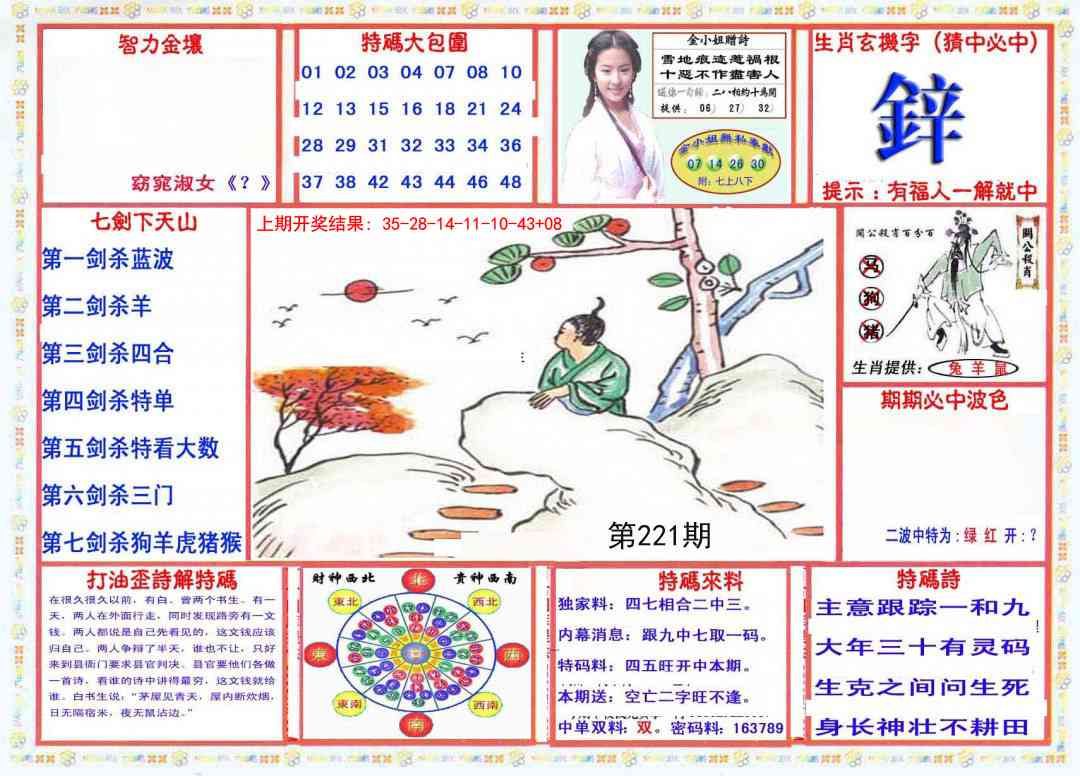 智力金壤
窈窕淑女《？》
特碼大包圍
01 02 03 04 07 08 10
12 13 15 16 18 21 24
28 29 31 32 33 34 36
37 38 42 43 44 46 48
金小姐赠詩
雪地痕迹惹禍根
十恶不作盡害人
二八相約十為閑
提供: 06) 27) 32)
07 14 26 30
附:七上八下
生肖玄機字（猜中必中）
鋅
提示：有福人一解就中
七劍下天山
第一剑杀蓝波
第二剑杀羊
第三剑杀四合
第四剑杀特单
第五剑杀特看大数
第六剑杀三门
第七剑杀狗羊虎猪猴
上期开奖结果: 35-28-14-11-10-43+08
第221期
関公殺宵百分百
関公殺肖
马
狗
猪
生肖提供: 兔 羊 鼠
期期必中波色
二波中特为:绿 红 开:?
打油歪詩解特碼
在很久很久以前，有白、曾两个书生。有一
天，两人在外面行走，同时发现路旁有一文
钱。两人都说是自己先看见的，这文钱应该
归自己。两人争辩了半天，谁也不让，只好
来到县衙门要求县官判决。县官要他们各做
一首诗，看谁的诗中讲得最穷，这文钱就给
谁。白书生说，“茅屋见青天，屋内断炊烟，
日无隔宿米，夜无鼠沾边。”
財神西北 貴神西南
北
東北
西北
東
西
東南
西南
南
特碼來料
独家料: 四七相合二中三。
内幕消息: 跟九中七取一码。
特码料: 四五旺开中本期。
本期送: 空亡二字旺不逢。
中单双料: 双。密码料: 163789
特碼詩
主意跟踪一和九
大年三十有灵码
生克之间问生死
身长神壮不耕田